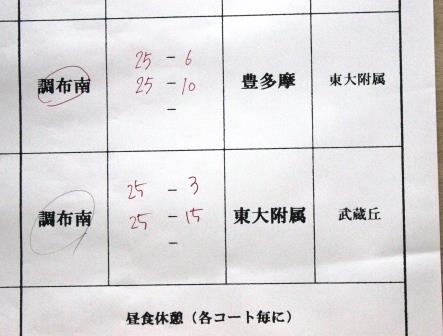 25 - 6
調布南 25 - 10 豊多摩 東大附属
-
25 - 3
調布南 25 - 15 東大附属 武蔵丘
-
昼食休憩（各コート毎に）